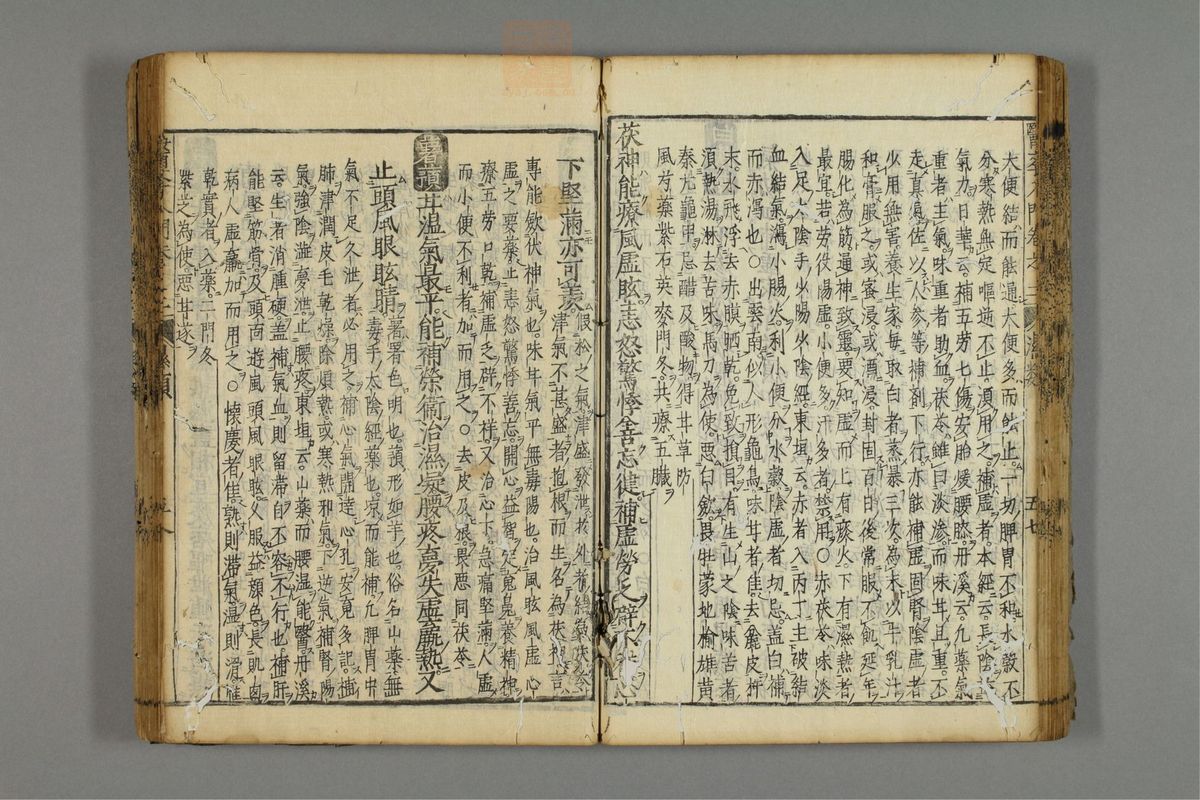 大便結而能通大便多而能止一切脾胃不和水穀不
分寒熱無定嘔逆不止須用之補虛者本經云長陰
氣力日華云補五勞七傷安胎煖腰膝丹溪云凡藥氣
重者主氣味重者助血茯苓雖曰淡滲而味甘且重不
走真氣佐以人參等補劑下行亦能補虛固腎陰虛者
少用無害養生家每取白者蒸暴三次為末以牛乳汁
和膏服之或蜜浸或酒浸封固百日後常服不飢延年
腸化為筋通神致靈要知虛而上有痰火下有濕熱者
最宜若勞役陽虛小便多汗多者禁用○赤茯苓味淡
入足太陰手少陽火陰經東垣云赤者入丙丁主破結
血結氣瀉小腸火利小便分水穀陰虛者切忌蓋白補
而赤瀉也○出雲南似人形龜鳥味甘者佳去麄皮杵
末水飛浮去赤膜晒乾免致損目有生山之陰味苦者
須熱湯淋去苦味馬刀為使惡白斂畏牡蒙地榆雄黃
秦艽龜甲忌醋及酸物得甘草防
風芍藥紫石英麥門冬共療五臟
茯神能療風虛眩恚怒驚悸善忘健補虛勞乏
下堅滿亦可羨假松之氣津盛發泄於外
津氣不甚盛者抱根而生名為茯神言
專能斂伏神氣也味甘氣平無毒陽也治風眩風虛心
虛之要藥止恚怒驚悸善忘開心益智定魂魄養精神
療五勞口乾補虛乏辟不祥又治心下急痛堅滿人虛
而小便不利者加而用之○去皮及根畏惡同茯苓
薯蕷甘溫氣最平能補榮衛治濕痰腰疼夢失虛羸熱又
止頭風眼眩睛薯署色明也蕷形如芋也俗名山藥無
毒手太陰經藥也涼而能補凡脾胃中
氣不足久泄者必用之補心氣開達心孔安魂多記補
肺津潤皮毛乾燥除煩熱或寒熱邪氣下逆氣補腎陽
氣強陰澁夢泄止腰疼東垣云山藥而腰濕能醫丹溪
云生者消腫硬蓋補氣血則留滯自不容不行也補肝
能堅筋骨及頭面遊風頭風眼眩久服益顏色長肌肉
病人虛羸加而用之○懷慶者佳熟則滯氣溫則滑惟
乾實者入藥二門冬
紫芝為使惡甘遂